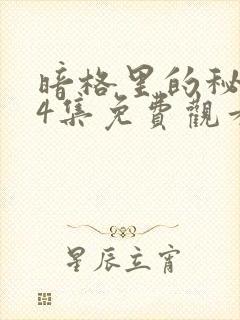 暗格里的秘
4集免費觀看
星辰立宵